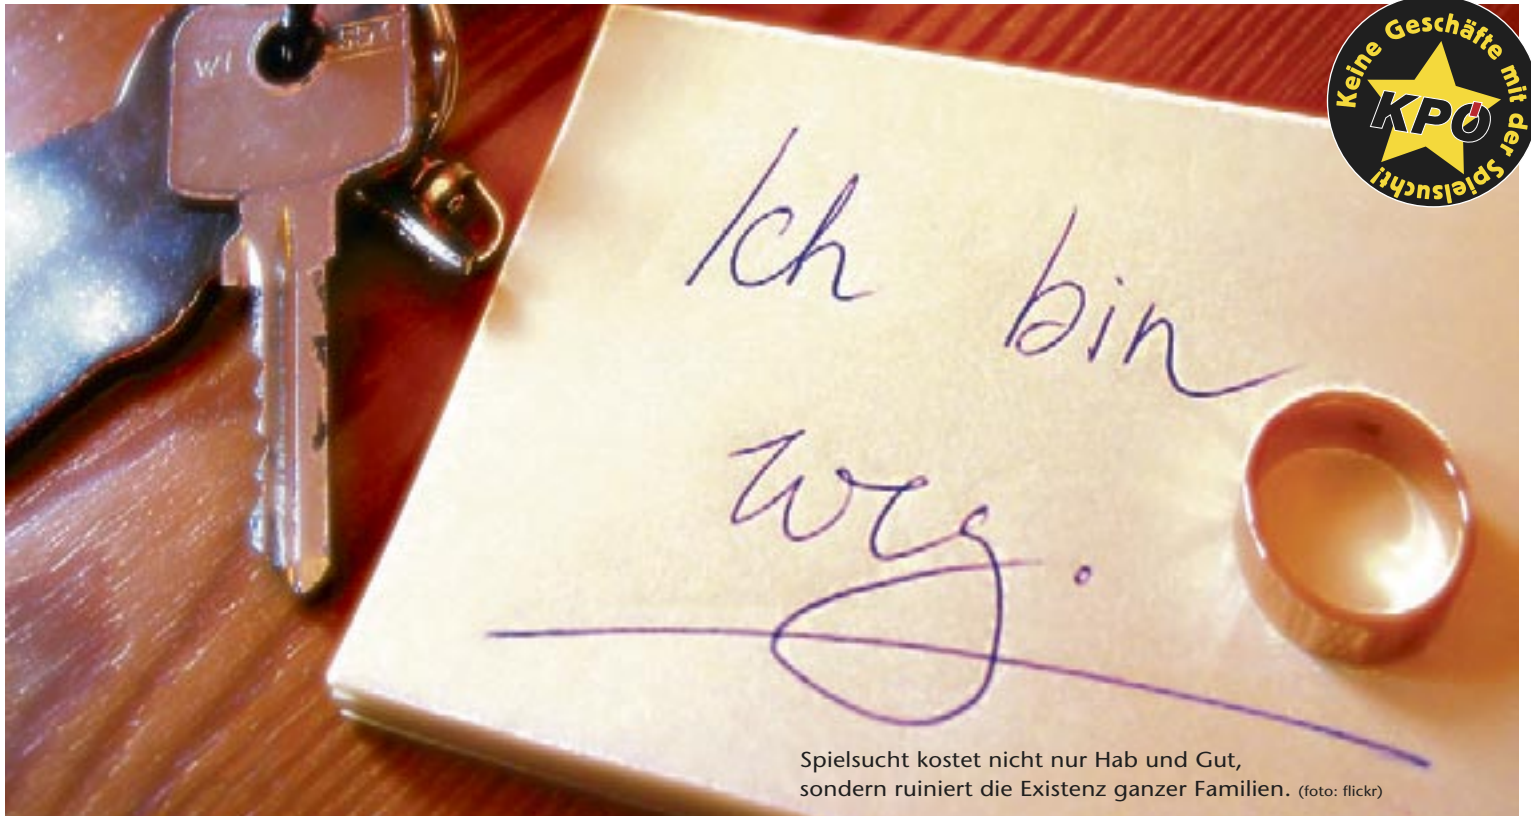 WI 551
Keine Geschäfte mit der Spielsucht!
KPÖ
Ich bin
weg.
Spielsucht kostet nicht nur Hab und Gut,
sondern ruiniert die Existenz ganzer Familien. (foto: flickr)